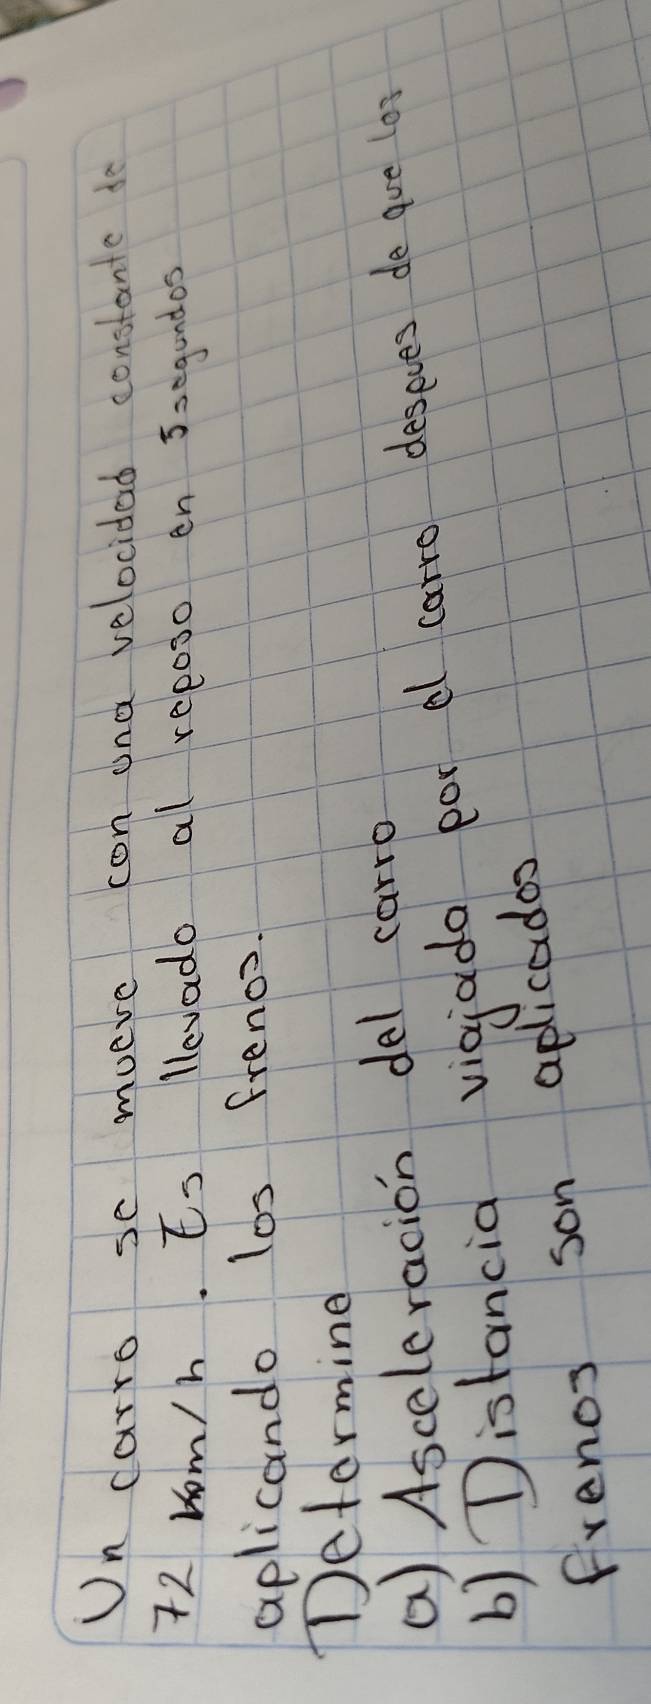 Un carro se mueve con una velocidad constante de
72 Km/h. Es llevado al reposo en 5 segundos
aplicando los frenos.
Determine
a) Asceleración del carro
b) Distancia viajada por el carro despues de que los
frenos son aplicados